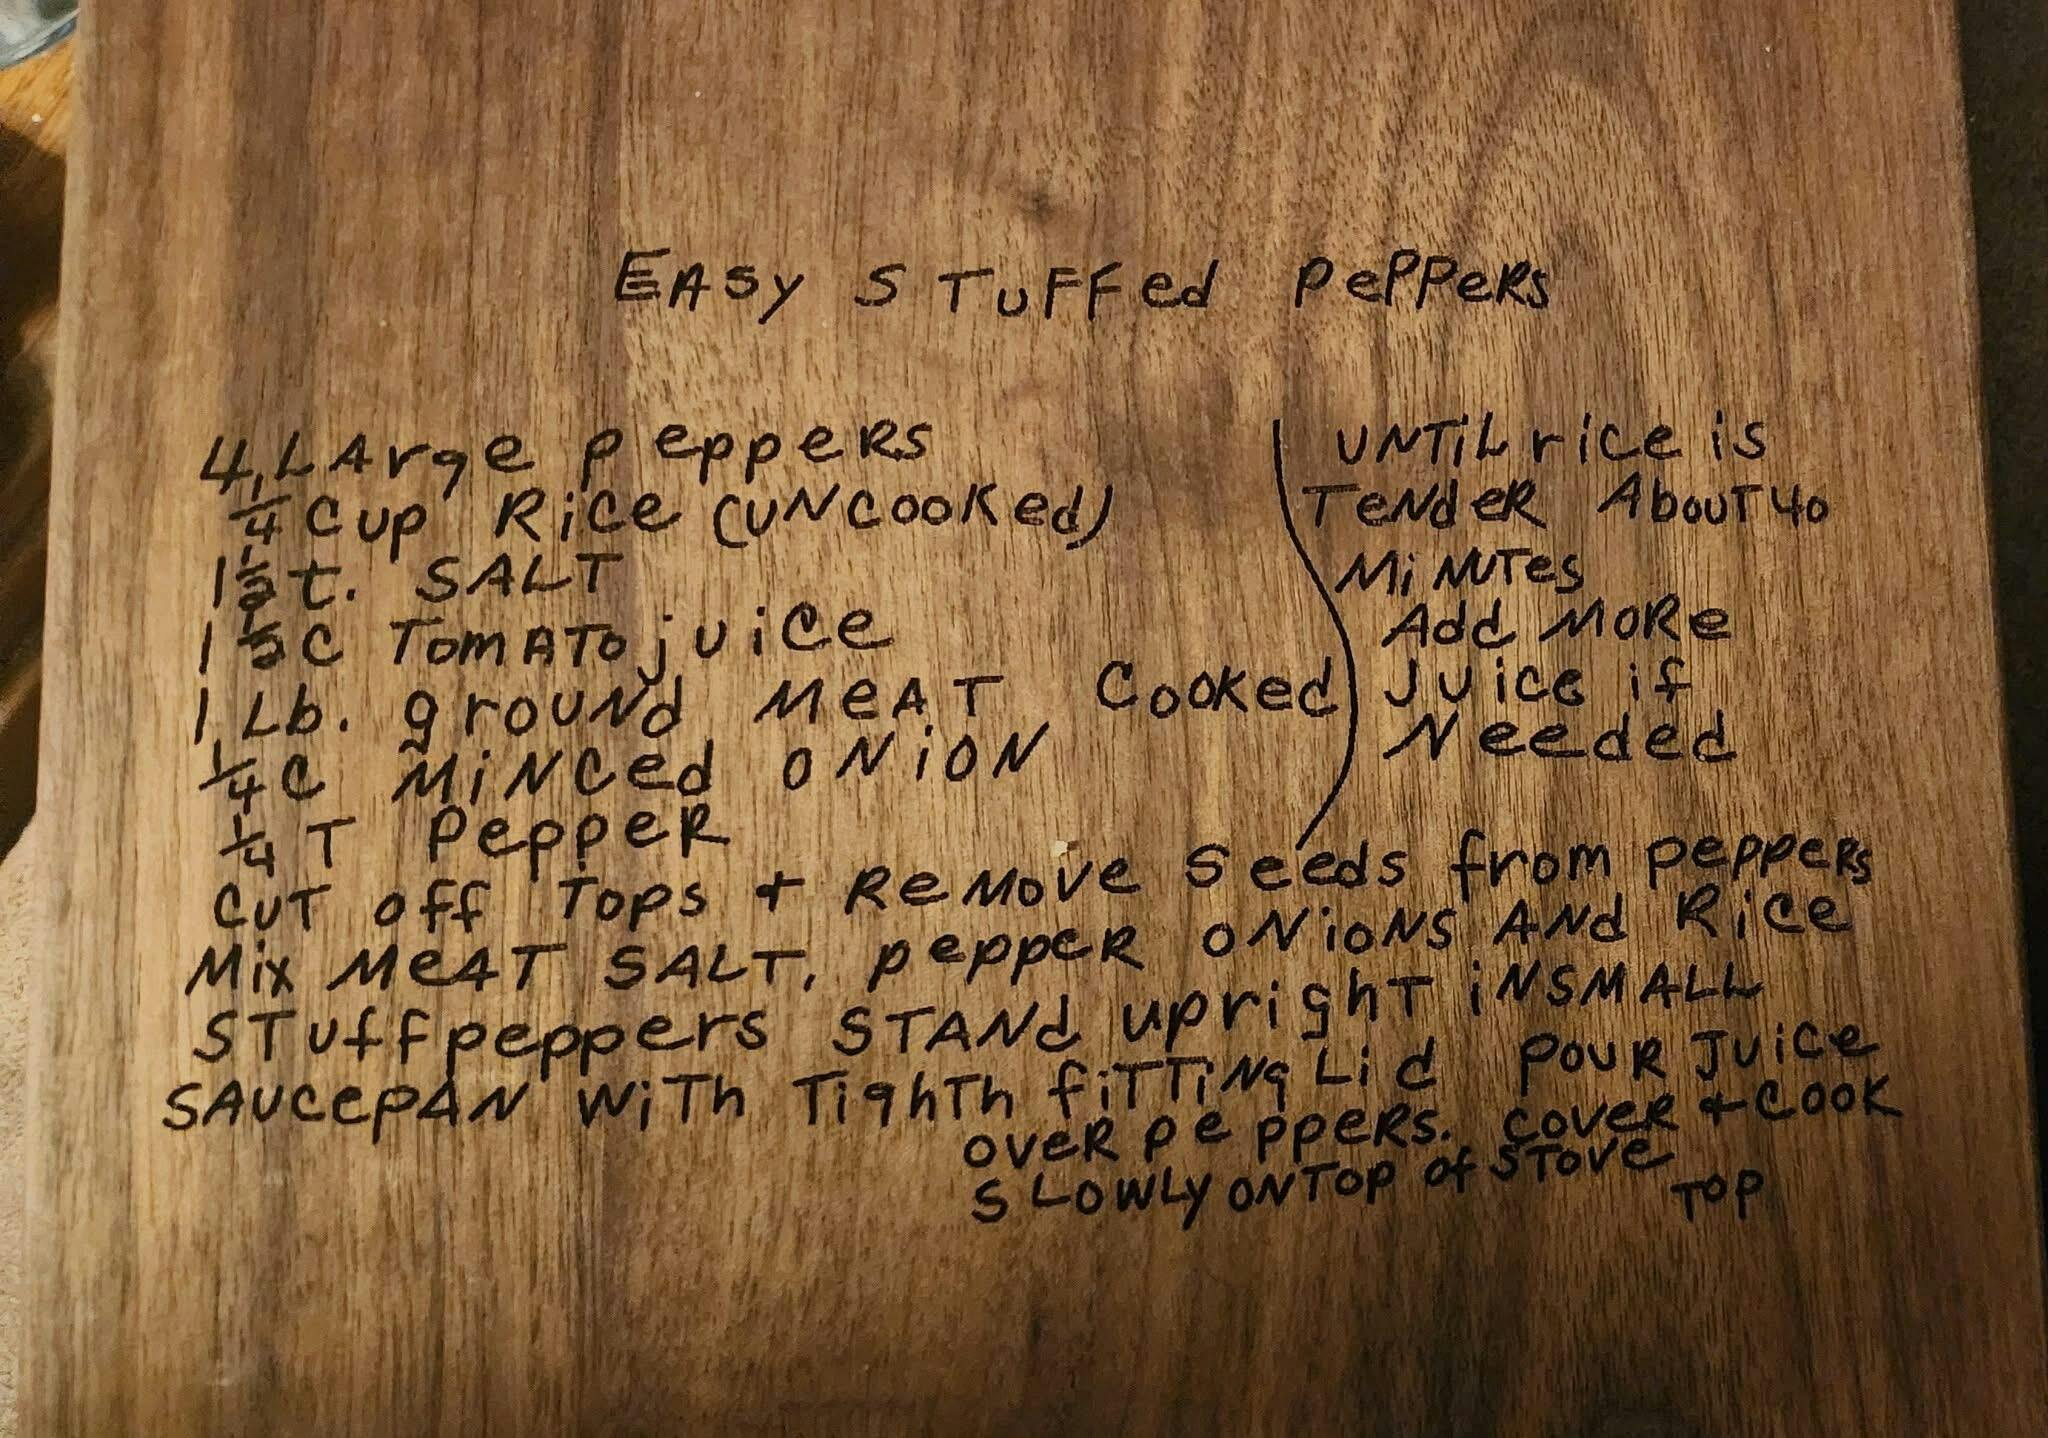 EASy STuFFed PePPeRs
4 LArge peppeRS
1/4 Cup RiCe (UNCooKed)
1 1/2 t. SALT
1 1/2 C TomATo juiCe
1 Lb. grouNd MeAT Cooked
1/4 C MiNCed oNioN
1/4 T PeppeR
CUT off Tops + ReMove Seeds from peppeRs
Mix MeAT SALT, peppeR oNioNS ANd RiCe
STuff peppers STANd upright iN SMALL
SAucepAN WiTh TighTh fiTTiNg Lid pouR JuiCe
oveR peppeRS. CoveR + Cook
SLOWLy oN Top of STove Top
UNTiL rice is
TeNdeR About 40
MiNuTes
Add MoRe
Juice if
Needed